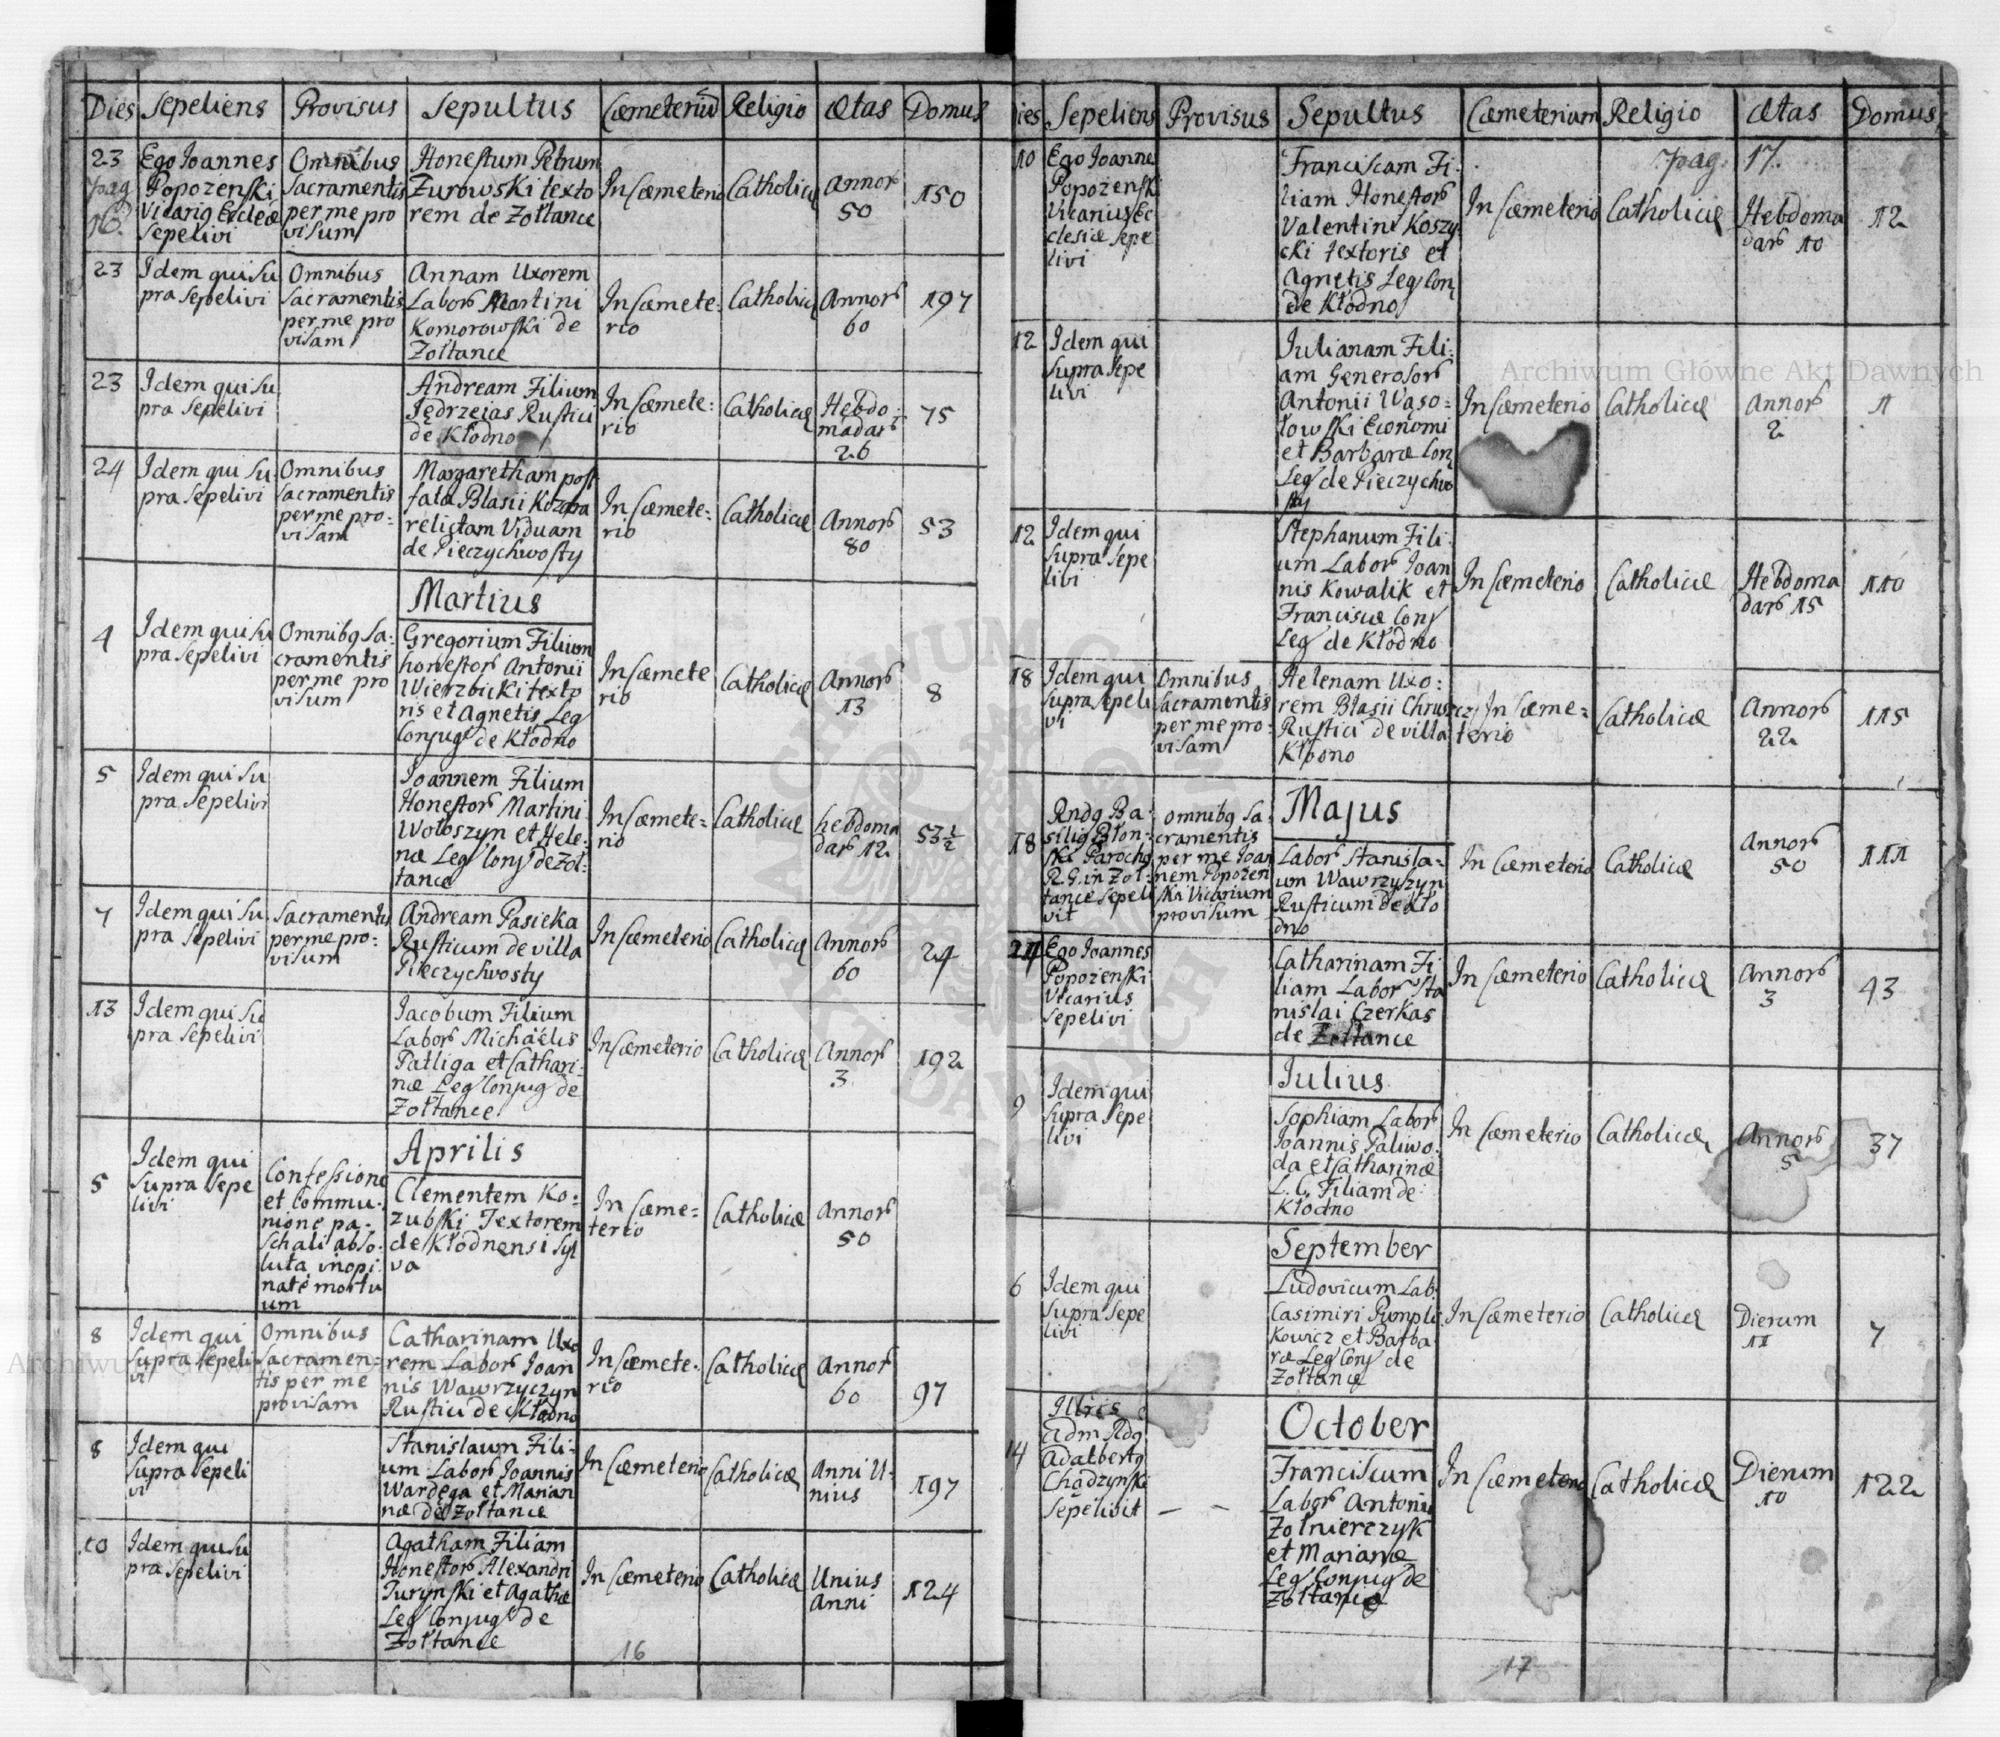 Dies Sepeliens Provisus Sepultus Cœmeteriū Religio Ætas Domus
23
pag
16.
Ego Ioannes
Popozenski
Vicarig Ecleæ
Sepelivi
Omnibus
Sacramentis
per me pro
visum
Honestum Petrum
Zurowski texto
rem de Zołtance
In Cœmeterio
Catholicæ
Annor
50
150
23
Idem qui su
pra Sepelivi
Omnibus
Sacramentis
per me pro
visam
Annam Uxorem
Labor Martini
Komorowski de
Zołtance
In Cœmete:
rio
Catholicæ
Annor
60
197
23
Idem qui su
pra Sepelivi
Andream Filium
Jędrzejas Rustici
de Kłodno
In Cœmete:
rio
Catholicæ
Hebdo
madar
26
75
24
Idem qui Su
pra Sepelivi
Omnibus
Sacramentis
per me pro:
visam
Margaretham post
fata Blasii
relictam Viduam
de Pieczychwosty
In Cœmete:
rio
Catholicæ
Annor
80
53
Martius
4
Idem qui su
pra Sepelivi
Omnibg Sa:
cramentis
per me pro
visum
Gregorium Filium
honestor Antonii
Wierzbicki texto
ris et Agnetis Leg
Conjug de Kłodno
In Cœmete
rio
Catholicæ
Annor
13
8
5
Idem qui Su
pra Sepelivi
Ioannem Filium
Honestor Martini
Wołoszyn et Hele:
næ Leg Conj de Zoł:
tance
In Cœmete=
rio
Catholicæ
hebdoma
dar 12
53½
7
Idem qui Su
pra Sepelivi
Sacramentis
per me pro:
visum
Andream Pasieka
Rusticum de villa
Pieczychwosty
In Cœmeterio
Catholicæ
Annor
60
24
13
Idem qui Su
pra Sepelivi
Iacobum Filium
Labor Michaëlis
Patliga et Cathari
næ Leg Conjug de
Zołtance
In Cœmeterio
Catholicæ
Annor
3
192
Aprilis
5
Idem qui
Supra Sepe
livi
Confessione
et Commu:
nione pa:
schali abso:
luta inopi
nate mortu
um
Clementem Ko:
zubski Textorem
de Kłodnensi Syl
va
In Cœme=
terio
Catholicæ
Annor
50
8
Idem qui
Supra Sepeli
vi
Omnibus
Sacramen=
tis per me
provisam
Catharinam Uxo
rem Labor Ioan
nis Wawrzyczyn
Rustici de Kłodno
In Cœmete:
rio
Catholicæ
Annor
60
97
8
Idem qui
Supra Sepeli
vi
Stanislaum Fili:
um Labor Ioannis
Wardęga et Marian
næ de Zołtance
In Cœmeterio
Catholicæ
Anni U:
nius
197
10
Idem qui su
pra Sepelivi
Agatham Filiam
Honestor Alexandri
Turynski et Agathæ
Leg Conjug de
Zołtance
In Cœmeterio
Catholicæ
Unius
Anni
124
16
Dies Sepeliens Provisus Sepultus Cœmeterium Religio Ætas Domus
pag. 17.
10
Ego Ioanne
Popozenski
Vicarius Ec
clesiæ Sepe
livi
Franciscam Fi:
liam Honestor
Valentini Koszy
cki textoris et
Agnetis Leg Conj
de Kłodno
In Cœmeterio
Catholicæ
Hebdoma
dar 10
12
12
Idem qui
Supra Sepe
livi
Iulianam Fili:
am Generosor
Antonii Wąso=
łowski Economi
et Barbaræ Conj
Leg de Pieczychwo
sty
In Cœmeterio
Catholicæ
Annor
2
1
12
Idem qui
Supra Sepe
livi
Stephanum Fili
um Labor Ioan
nis Kowalik et
Franciscæ Conj
Leg de Kłodno
In Cœmeterio
Catholicæ
Hebdoma
dar 15
110
18
Idem qui
Supra Sepeli
vi
Omnibus
Sacramentis
per me pro:
visam
Helenam Uxo:
rem Blasii Chruszcz
Rustici de villa
Kłodno
In Cœme=
terio
Catholicæ
Annor
22
115
Majus
18
Rndg Ba:
silig Błon:
ski Parochg
R.G. in Zoł:
tance Sepeli
vit
omnibg Sa:
cramentis
per me Ioan
nem Popozen
ski Vicarium
provisum
Labor Stanisla=
um Wawrzyszyn
Rusticum de Kło
dno
In Cœmeterio
Catholicæ
Annor
50
111
Ego Ioannes
Popozenski
Vicarius
Sepelivi
Catharinam Fi
liam Labor Sta
nislai Czerkas
de Zołtance
In Cœmeterio
Catholicæ
Annor
3
43
Iulius
9
Idem qui
Supra Sepe
livi
Sophiam Labor
Ioannis Paliwo
da et Catharinæ
L. C. Filiam de
Kłodno
In Cœmeterio
Catholicæ
Annor
5
37
September
6
Idem qui
Supra Sepe
livi
Ludovicum Lab
Casimiri Pumpli
kowicz et Barba
ræ Leg Conj de
Zołtance
In Cœmeterio
Catholicæ
Dierum
11
7
October
14
Illris
Adm Rdg
Adalbertg
Chądzynski
Sepelivit
Franciscum
Labor Antonii
Zołnierczyk
et Mariannæ
Leg Conjug de
Zołtance
In Cœmeterio
Catholicæ
Dierum
10
122
17
Archiwum Główne Akt Dawnych